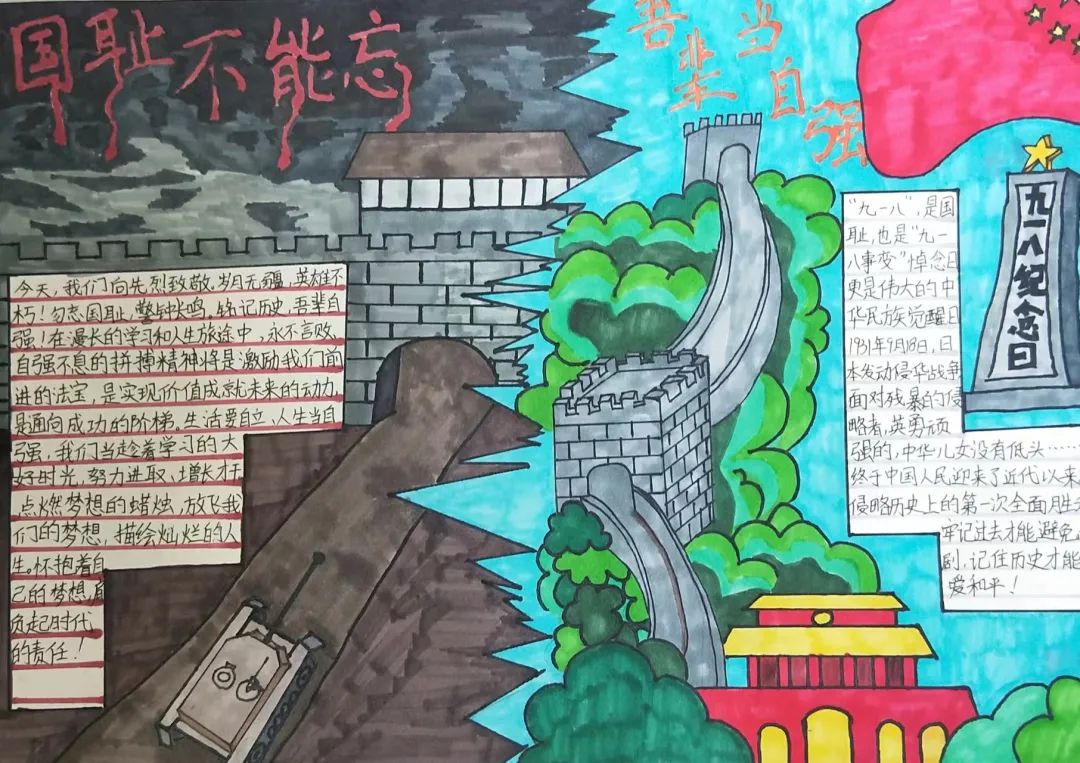 国耻不能忘
吾辈当自强
今天,我们向先烈致敬,岁月无疆,英雄不
朽!勿忘国耻,警钟长鸣,铭记历史,吾辈自
强!在漫长的学习和人生旅途中,永不言败、
自强不息的拼搏精神将是激励我们前
进的法宝,是实现价值成就未来的动力,
是通向成功的阶梯。生活要自立,人生当自
强,我们当趁着学习的大
好时光,努力进取,增长才干
点燃梦想的蜡烛,放飞我
们的梦想,描绘灿烂的人
生。怀抱着自
己的梦想,肩
负起时代
的责任!
“九一八”,是国
耻,也是“九一
八事变”悼念日
更是伟大的中
华民族觉醒日
1931年9月18日,日
本发动侵华战争
面对残暴的侵
略者,英勇顽
强的,中华儿女没有低头……
终于中国人民迎来了近代以来
侵略历史上的第一次全面胜
牢记过去才能避免
剧,记住历史才能
爱和平!
九一八纪念日